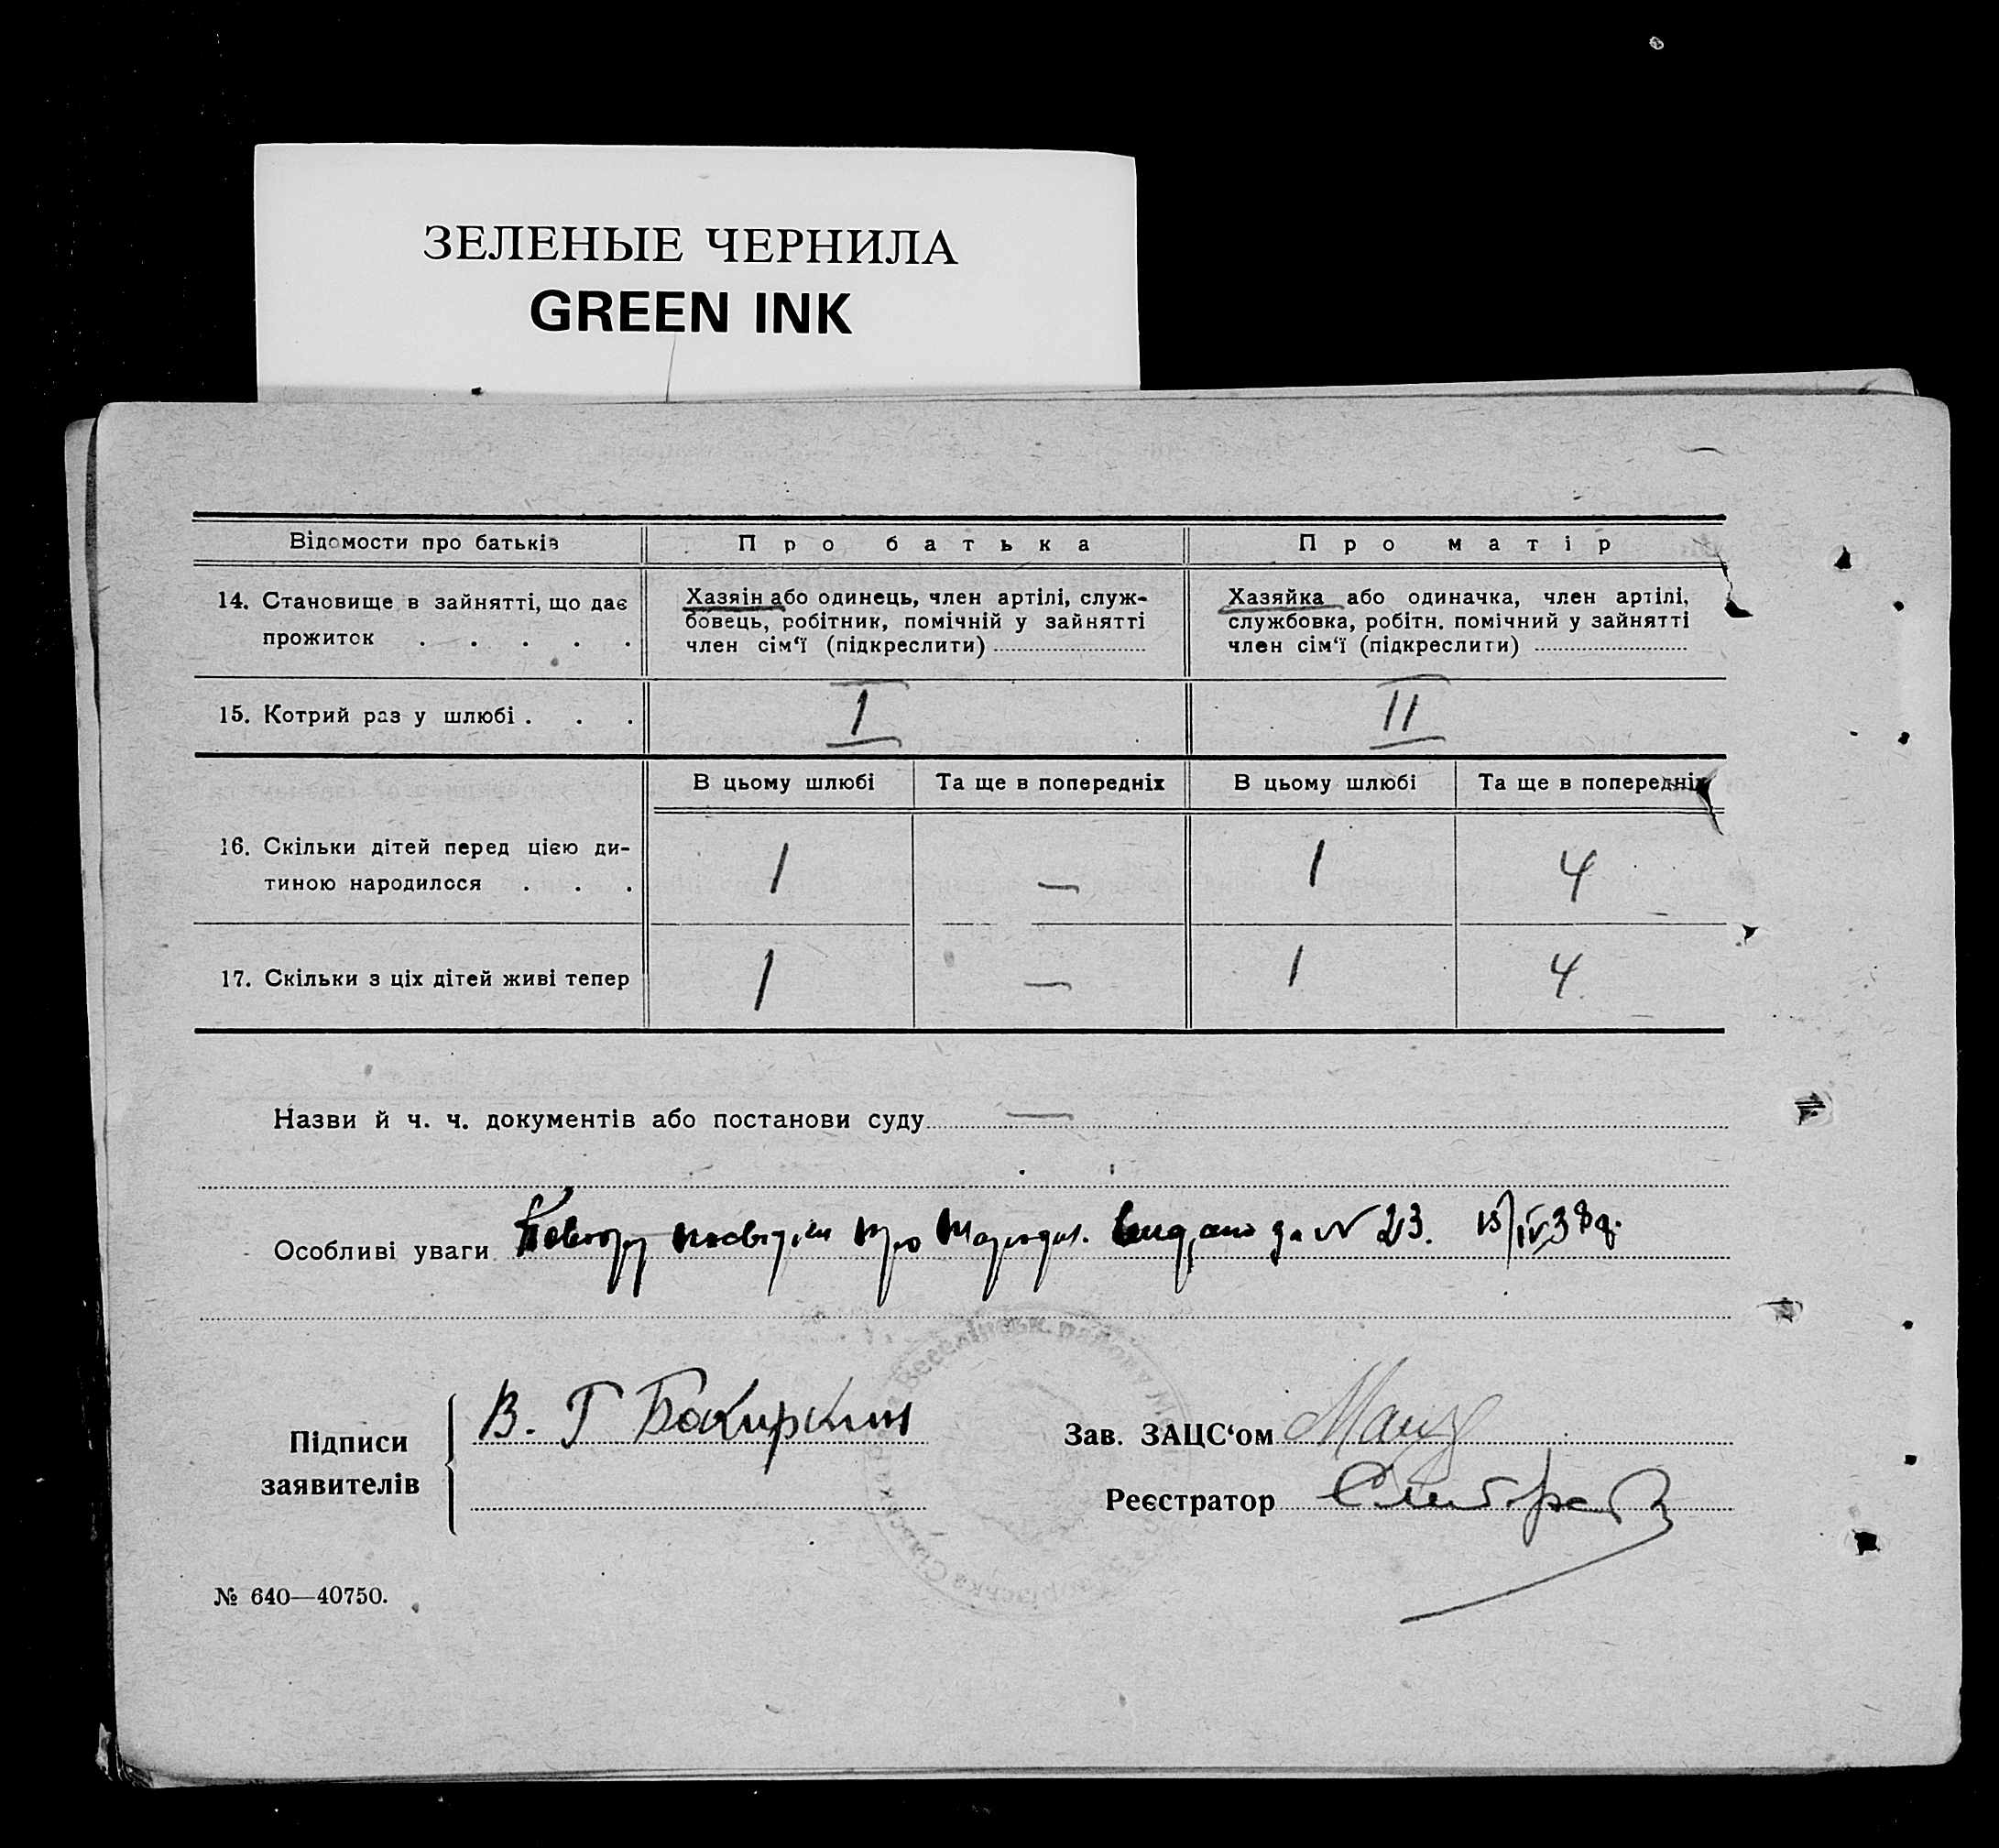 ЗЕЛЕНЫЕ ЧЕРНИЛА
GREEN INK
Відомости про батьків Про батька Про матір
14. Становище в зайнятті, що дає прожиток . . . . .
Хазяін або одинець, член артілі, служ-
бовець, робітник, помічній у зайнятті
член сім‘ї (підкреслити)
Хазяйка або одиначка, член артілі,
службовка, робітн. помічний у зайнятті
член сім‘ї (підкреслити)
15. Котрий раз у шлюбі . . . I II
В цьому шлюбі Та ще в попередніх В цьому шлюбі Та ще в попередніх
16. Скільки дітей перед цією ди-
тиною народилося . . . 1 — 1 4
17. Скільки з ціх дітей живі тепер 1 — 1 4
Назви й ч. ч. документів або постанови суду —
Особливі уваги про видано за № 23. 15/IV 38 р.
Підписи
заявителів
В. Г
Зав. ЗАЦС‘ом
Реєстратор
№ 640—40750.